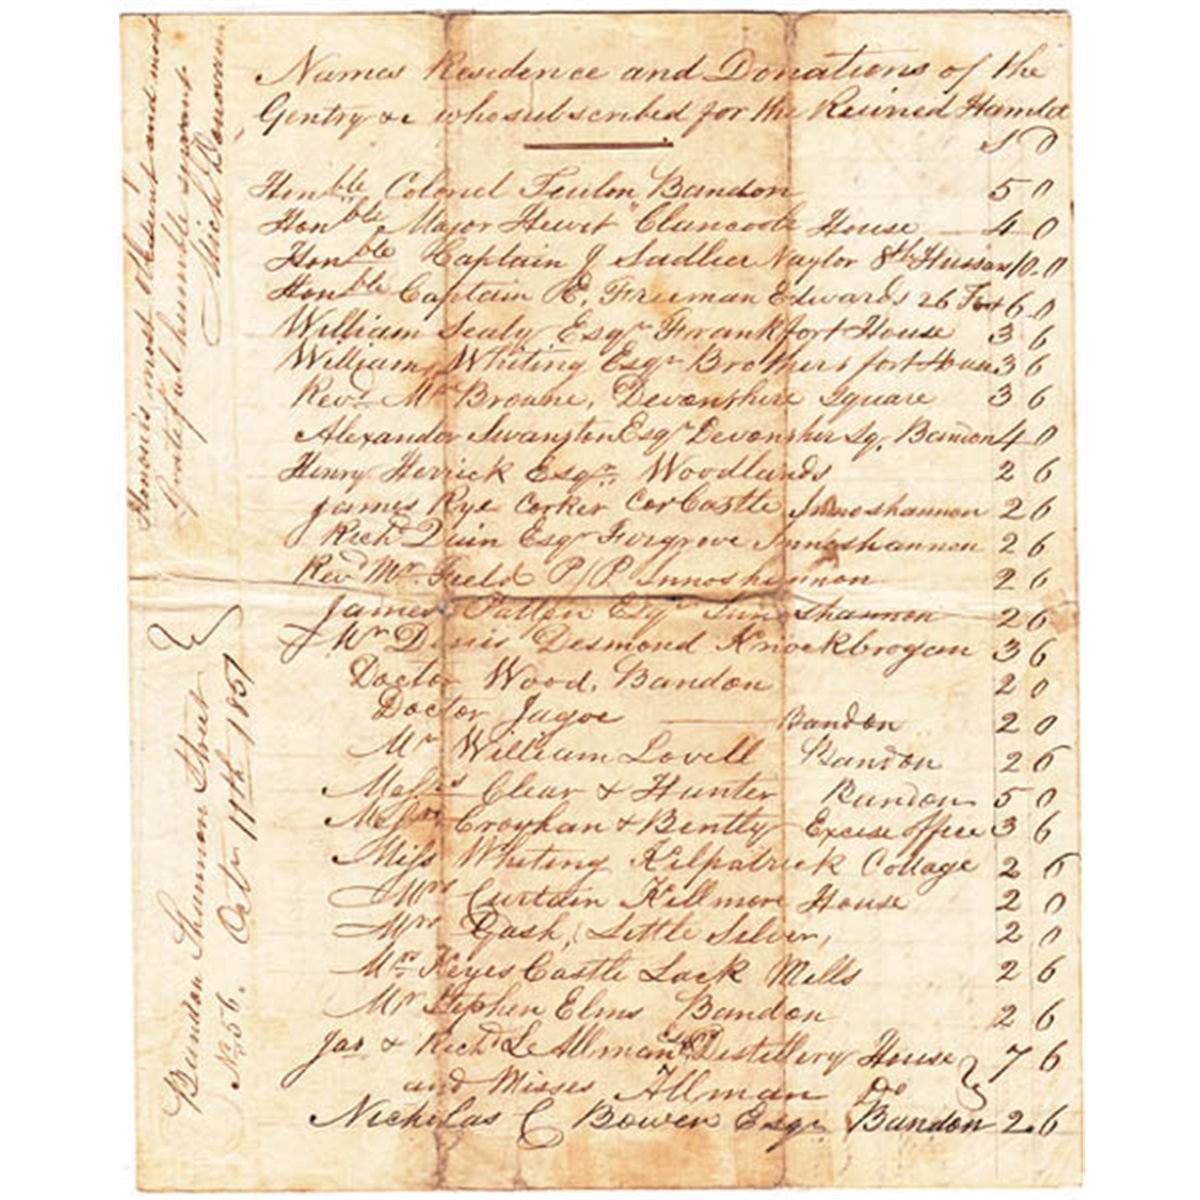 Names Residence and Donations of the
Gentry &c who subscribed for the Ruined Hamlet
s D
Honble Colonel Teulon Bandon 5 0
Honble Major Hewit Clancoole House 4 0
Honble Captain J Sadlier Naylor 8th Hussars 10.0
Honble Captain E. Freeman Edwards 26 Foot 6 0
William Sealy Esqr Frankfort House 3 6
William Whiting Esqr Brothersfort House 3 6
Revd Mr Broane, Devonshire Square 3 6
Alexander Swanston Esqr Devonsher Sq. Bandon 4 0
Henry Herrick Esqr. Woodlands 2 6
James Rye Corker Cor Castle Innoshannon 2 6
Richd Quin Esqr Firgrove Innoshannon 2 6
Revd Mr Field P/P. Innoshannon 2 6
James Patten Esqr Innoshannon 2 6
Mr Denis Desmond Knockbrogan 3 6
Doctor Wood, Bandon 2 0
Doctor Jagoe Bandon 2 0
Mr William Lovell Bandon 2 6
Messrs Clear & Hunter Bandon 5 0
Messrs Croghan & Bently Excise office 3 6
Miss Whiting Kilpatrick Cottage 2 6
Mrs Curtain Killmore House 2 0
Mrs Dash, Little Silver, 2 0
Mrs Keyes Castle Lack Mills 2 6
Mr Stephen Elms Bandon 2 6
Jas & Richd L Allman Distillery House 7 6
and Misses Allman Do
Nicholas C Bowen Esqr Bandon 2.6
Honours most and most
Grateful humble servant
Michl Donovan
Bandon Shannon Street
No. 56. Octr 17th 1851